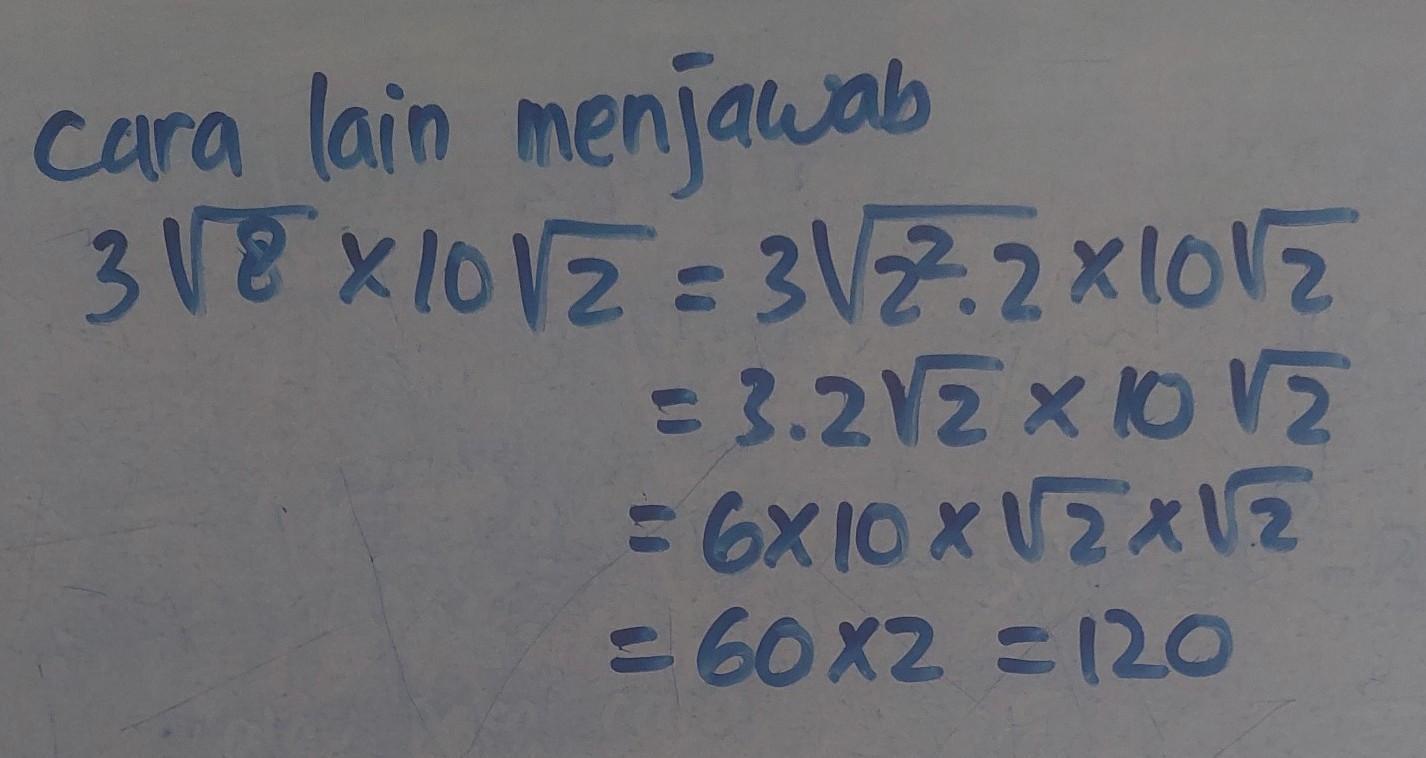 cara lain menjawab
3√8 × 10√2 = 3√2².2 × 10√2
= 3.2√2 × 10√2
= 6×10×√2×√2
= 60×2 = 120